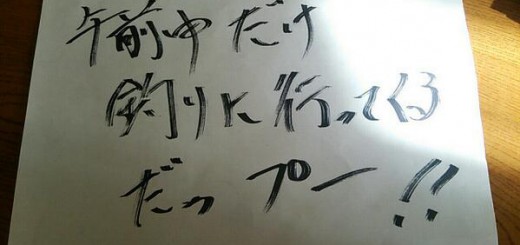 午前中だけ
釣りに行ってくる
だっプー!!